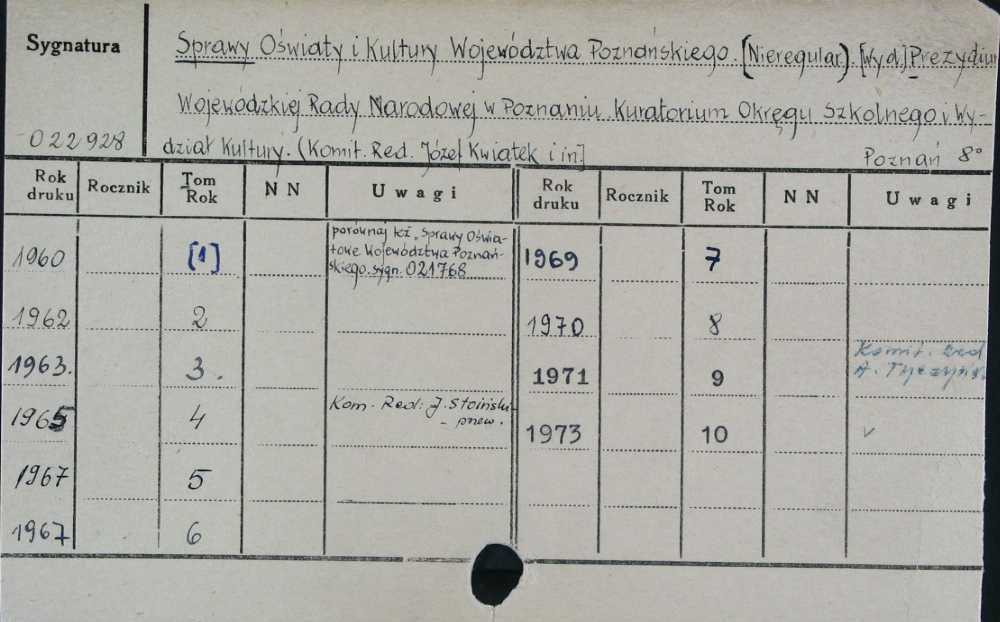 Sygnatura
022928
Sprawy Oświaty i Kultury Województwa Poznańskiego. [Nieregular.). [Wyd.] Prezydium
Wojewódzkiej Rady Narodowej w Poznaniu. Kuratorium Okręgu Szkolnego i Wy-
dział Kultury. (Komit. Red. Józef Kwiatek i in.]
Poznań 8°
Rok druku Rocznik Tom Rok NN Uwagi Rok druku Rocznik Tom Rok NN Uwagi
1960 [1] porównaj też „Sprawy Oświa-
towe Województwa Poznań-
skiego. sygn. 021768
1969 7
1962 2
1970 8
1963. 3.
1971 9 Komit. Red
A. Tyczyńs.
1965 4 Kom. Red: J. Stoiński
- przew.
1973 10 v
1967 5
1967 6